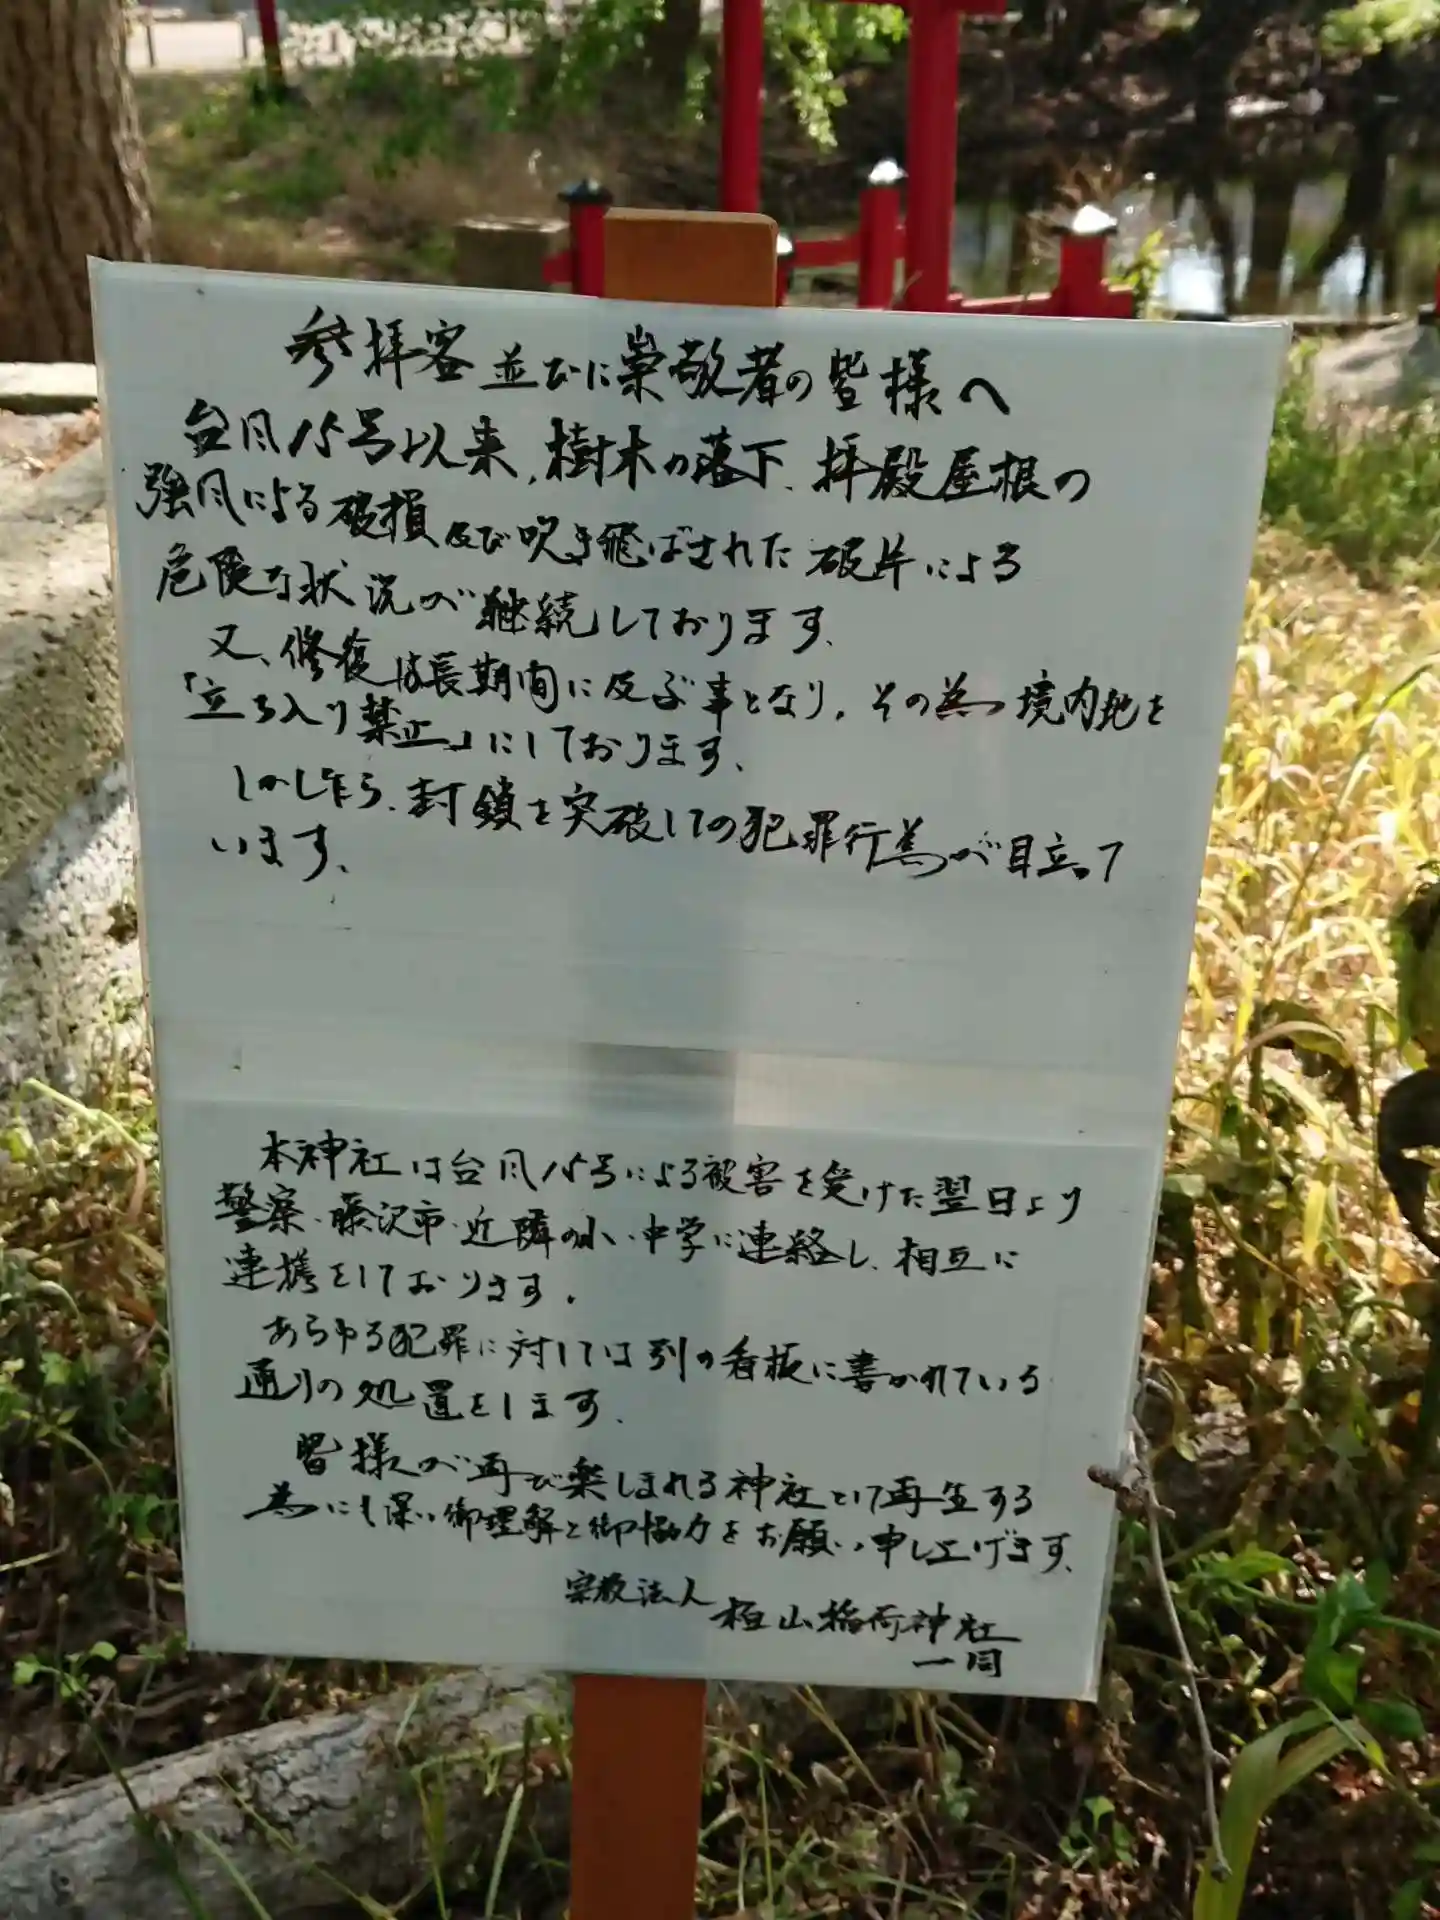 参拝客並びに崇敬者の皆様へ
台風15号以来、樹木の落下、拝殿屋根の
強風による破損及び吹き飛ばされた破片による
危険な状況が継続しております。
又、修復は長期間に及ぶ事となり、その為境内地を
「立ち入り禁止」にしております。
しかし乍ら、封鎖を突破しての犯罪行為が目立って
います。
本神社は台風15号による被害を受けた翌日より
警察・藤沢市・近隣の小・中学に連絡し、相互に
連携をしております。
あらゆる犯罪に対しては別の看板に書かれている
通りの処置をします。
皆様が再び楽しまれる神社として再生する
為にも深い御理解と御協力をお願い申し上げます。
宗教法人 柄山稲荷神社
一同